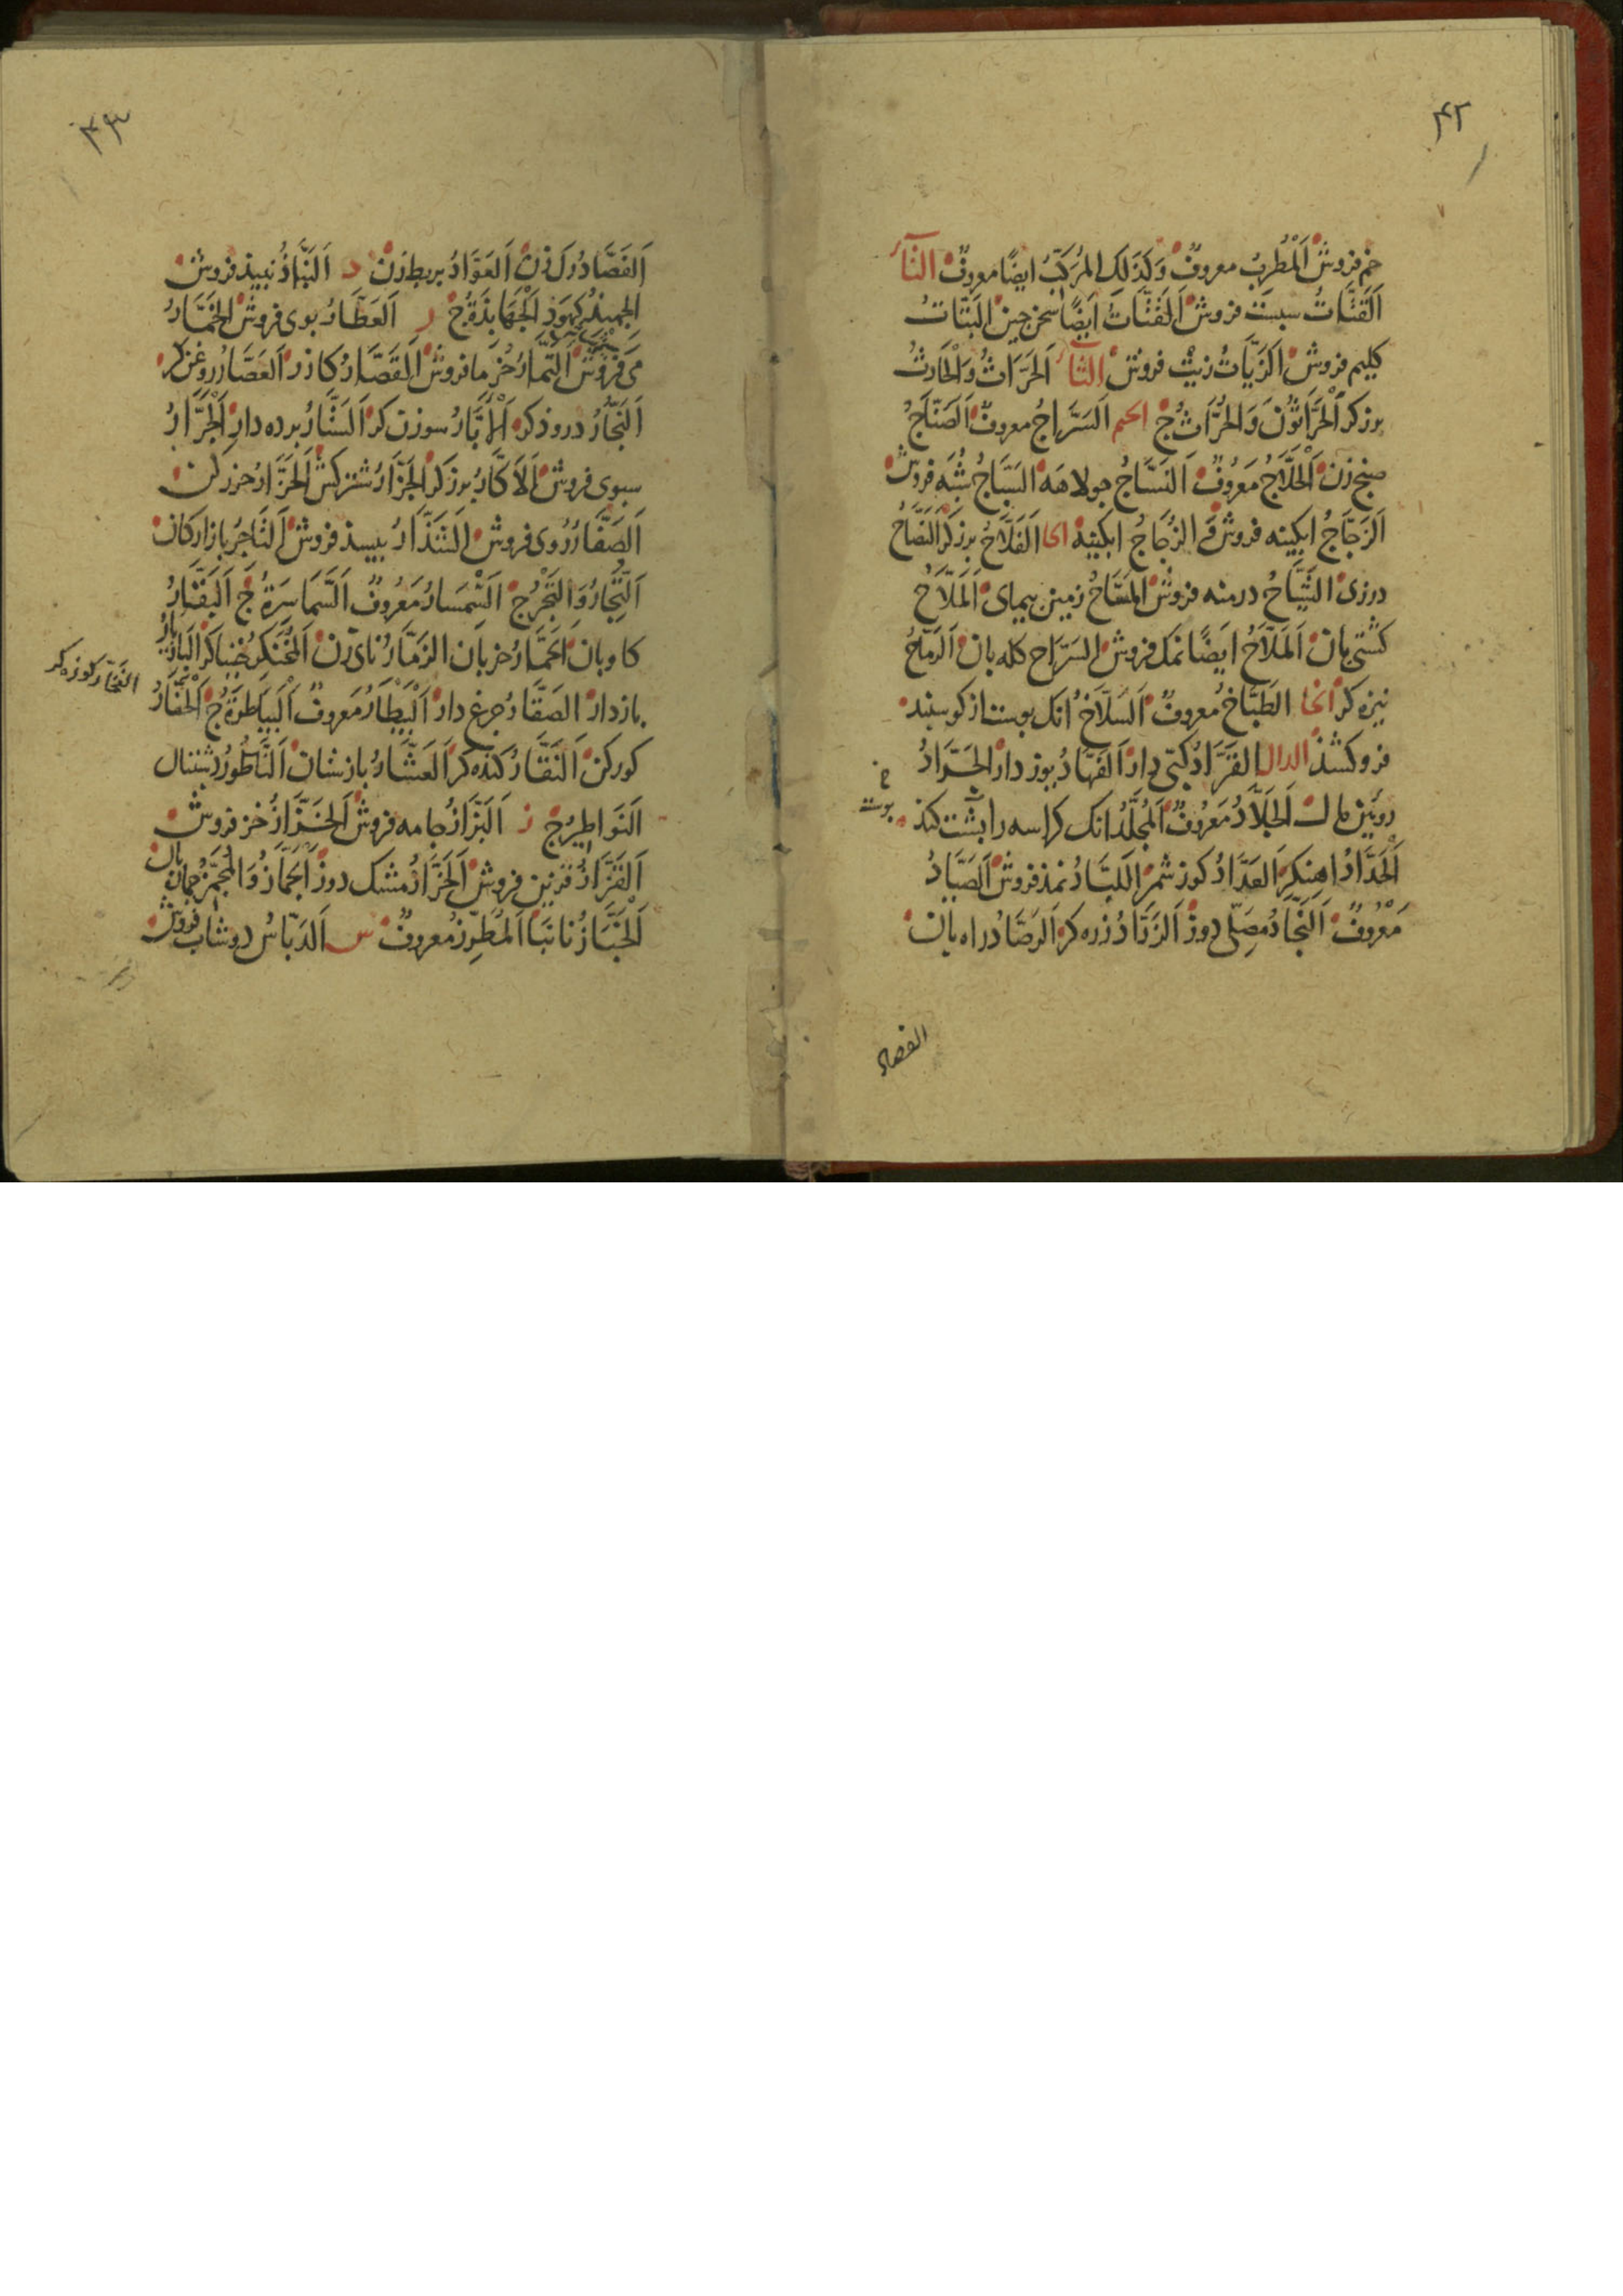 ۴۲
خم فروش اَلْمُطْرِبُ معروفٌ وَكَذَلِكَ المُرَكِّبُ ايضًا معروفٌ التآء
اَلقَتَّاتُ سبست فروش اَلقَتَّاتُ اَيضًا سخن چين البَتَّاتُ
كليم فروش اَلزَيَّاتُ زيت فروش الثآء اَلحَرَّاثُ وَالْحَارِثُ
برزكر اَلْحَرَّاثُونَ وَالحُرَّاثُ ج الجيم اَلسَرَّاجُ معروفٌ اَلصَنَّاجُ
صنج زن اَلْحَلَّاجُ مَعرُوفٌ اَلنَسَّاجُ جولاهه السَبَّاجُ شبه فروش
اَلزَجَّاجُ ابكينه فروش وَ الزُجَاجُ ابكينه الحا اَلفَلَّاحُ برزكر اَلنَصَّاحُ
درزى الشَيَّاحُ درمنه فروش اَلمَسَّاحُ زمين پيماى اَلمَلَّاحُ
كشتى بان اَلمَلَّاحُ ايضًا نمك فروش السَرَّاح كله بان اَلرَمَّاحُ
نيزه كر الخا الطَبَّاخُ معروفٌ اَلسَلَّاخُ انك پوست از كوسپند
فرو كشذ الدال القَرَّادُ كپى دار اَلفَهَّادُ يوز دار الجَرَّادُ
رويين مال اَلجَلَّادُ مَعرُوفٌ اَلمُجَلِّدُ انك كراسه را پشت كند
پوست خ
اَلْحَدَّادُ اهنكر اَلعَدَّادُ كوز شمر اَللبَّادُ نمذ فروش اَلصَيَّادُ
مَعْرُوفٌ اَلنَجَّادُ مصلى دوز اَلزَرَّادُ زره كر اَلرَصَّادُ راه بان
الفصاد
۴۳
اَلفَصَّادُ رك زن اَلعَوَّادُ بربط زن ذ اَلنَبَّاذُ نبيذ فروش
الجهبذُ كهبذ اَلجَهَابِذَةُ ج ر اَلعَطَّارُ بوى فروش الخَمَّارُ
مى فروش اَلتمَّارُ خرما فروش اَلقَصَّارُ كازر اَلعَصَّارُ روغن كر
اَلنَجَّارُ دروذكر اَلْأَبَّارُ سوزن كر اَلسَتَّارُ پرده دار اَلْجَرَّارُ
سبوى فروش اَلاَكَّارُ برزكر الجَزَّارُ شتركش اَلحَزَّارُ حزر كن
اَلصَفَّارُ روى فروش فروش اَلتَاجِرُ بازاركان
اَلتِّجَارُ وَالتَجْرُ ج مَعرُوفٌ اَلسَمَاسِرَةُ ج اَلبَقَّارُ
كاوبان اَلحَمَّارُ خربان الزَمَّارُ ناى زن اَلخُنَكِرُ خنياكر اَلبَازيَارُ
الفَخّار كوزه كر
بازدار الصَقَّارُ چرغ دار اَلْبَيْطَارُ مَعروفٌ اَلْبَيَاطِرَةُ ج اَلحَفَّارُ
كوركن اَلنَقَّارُ كنده كر اَلعَشَّارُ باژستان اَلنَاطُورُ دشتبان
اَلنَوَاطِيرُ ج ز اَلبَزَّازُ جامه فروش اَلخَزَّازُ خز فروش
اَلقَزَّازُ قزين فروش اَلخَرَّازُ مشك دوز اَلجَمَّازُ وَالمُجَمِّزُ جمازه بان
اَلْخَبَّازُ نانبا اَلمُطَرِّزُ معروفٌ س اَلدَبَّاسُ دوشاب فروش